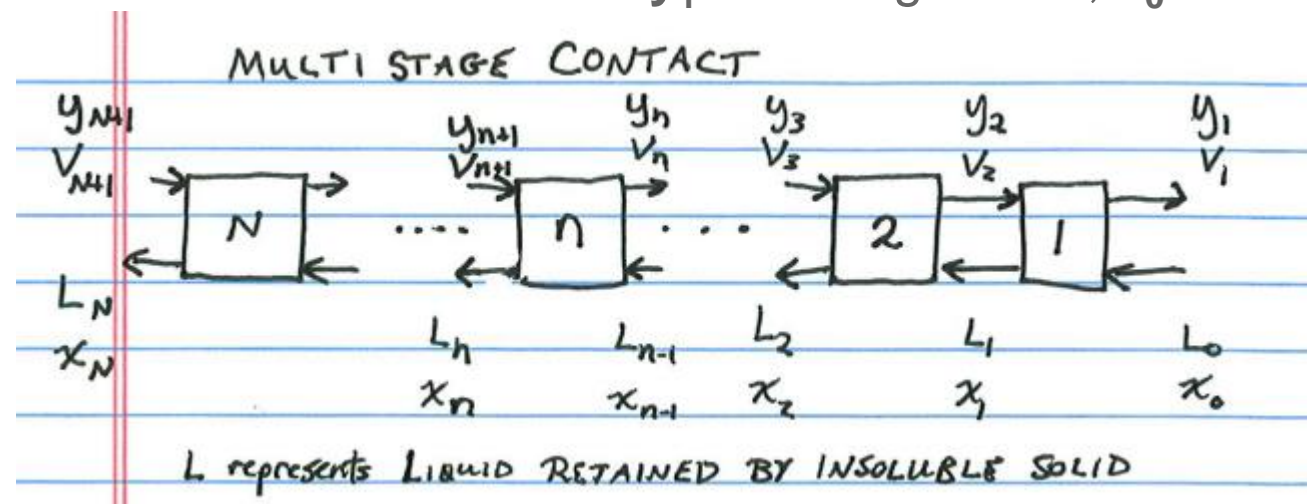 MULTI STAGE CONTACT
yN+1 yn+1 yn y3 y2 y1
VN+1 Vn+1 Vn V3 V2 V1
N .... n ... 2 1
LN Ln Ln-1 L2 L1 L0
xN xn xn-1 x2 x1 x0
L represents LIQUID RETAINED BY INSOLUBLE SOLID